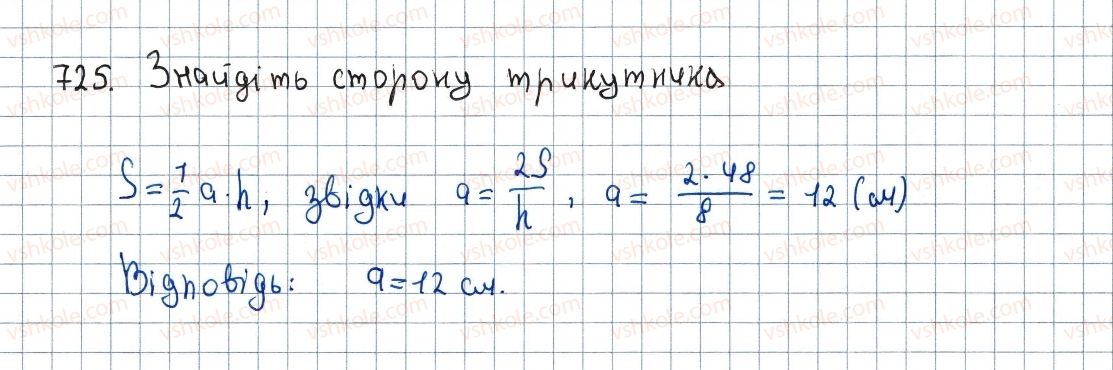 725. Знайдіть сторону трикутника
S = 1/2 a · h, звідки a = 2S/h, a = 2 · 48/8 = 12 (см)
Відповідь: a = 12 см.